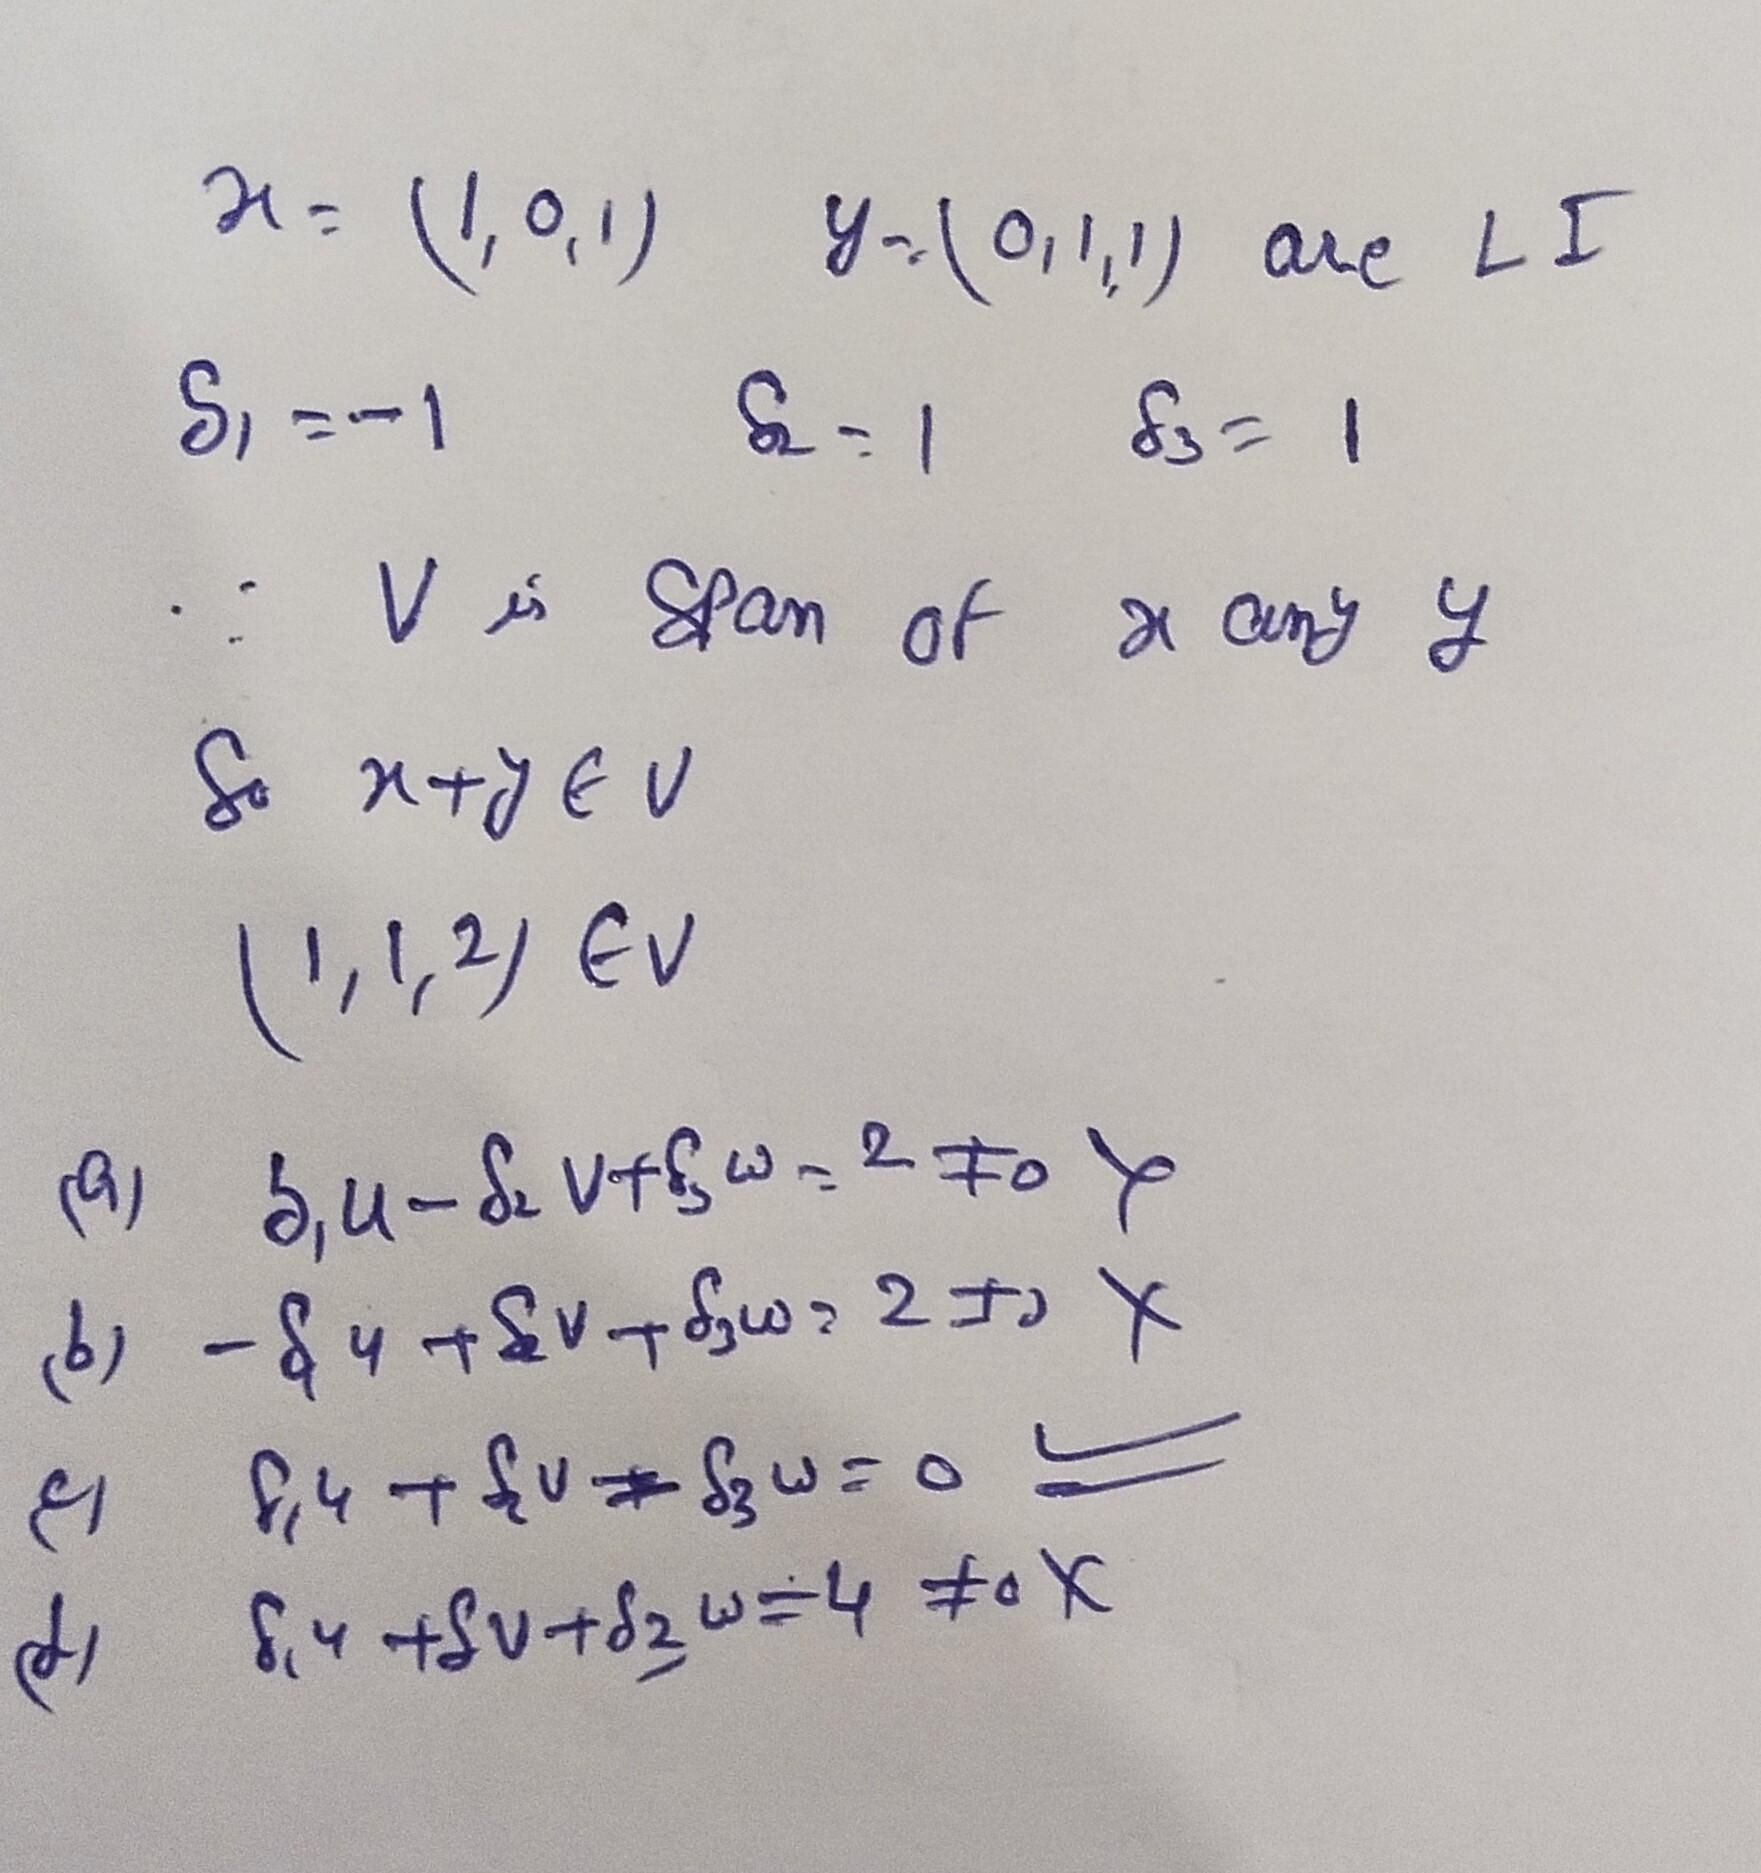 x = (1,0,1) y = (0,1,1) are LI
δ₁ = -1 δ₂ = 1 δ₃ = 1
∴ V is span of x any y
So x+y ∈ V
(1,1,2) ∈ V
(a) δ₁u - δ₂v + δ₃w = 2 ≠ 0 X
(b) -δ₁u + δ₂v + δ₃w = 2 ≠ 0 X
(c) δ₁u + δ₂v - δ₃w = 0 ✓
(d) δ₁u + δv + δ₂w = 4 ≠ 0 X